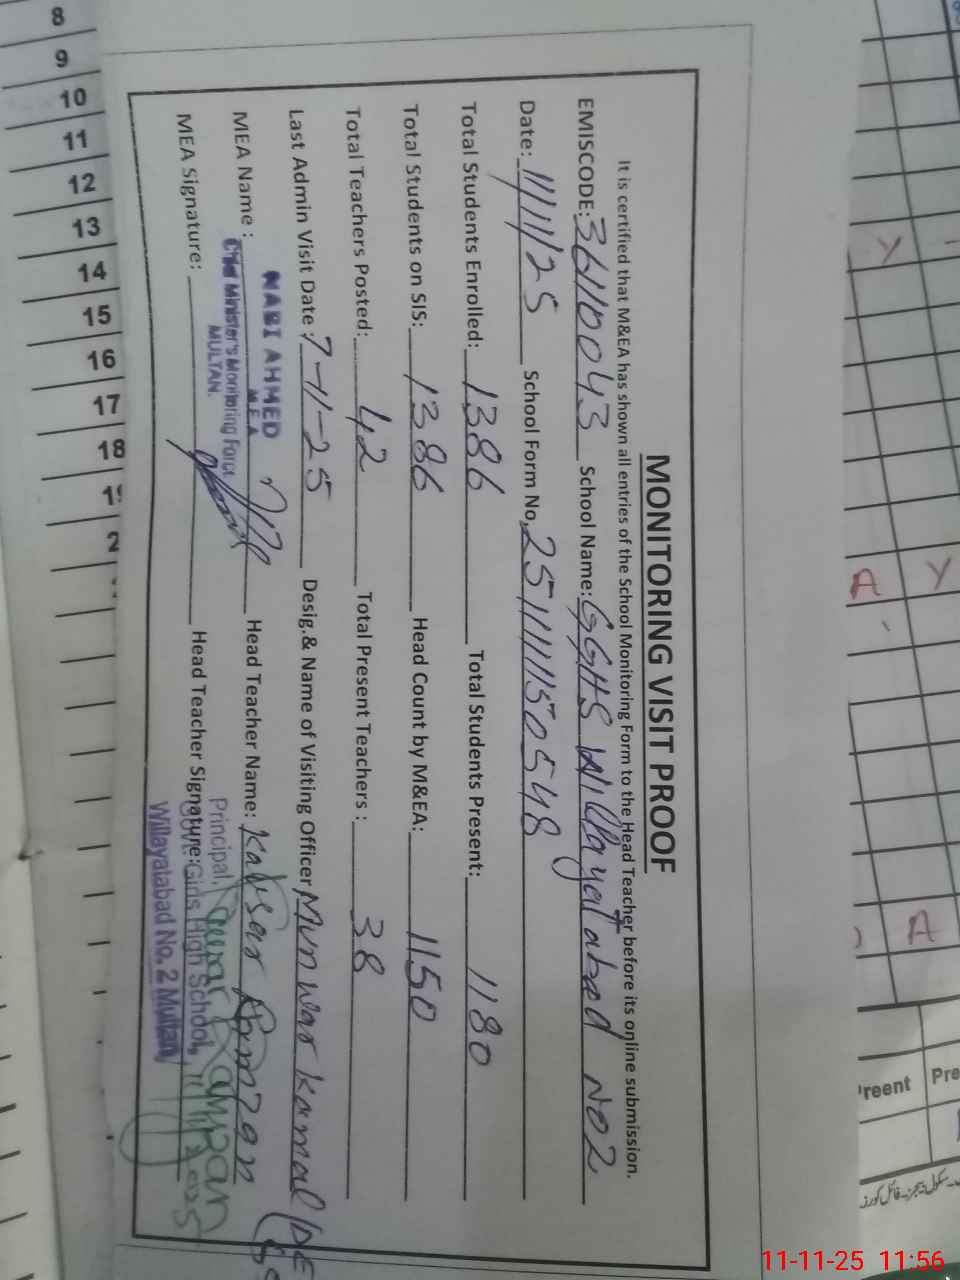 MONITORING VISIT PROOF
It is certified that M&EA has shown all entries of the School Monitoring Form to the Head Teacher before its online submission.
EMISCODE: 36110043 School Name: GGHS Willayatabad No 2
Date: 11/11/25 School Form No. 2511111150548
Total Students Enrolled: 1386 Total Students Present: 1180
Total Students on SIS: 1386 Head Count by M&EA: 1150
Total Teachers Posted: 42 Total Present Teachers : 38
Last Admin Visit Date : 7-11-25 Desig.& Name of Visiting Officer Munwar Kamal (DE
NABI AHMED
M E A
MEA Name : Head Teacher Name: Kausar Ramzan
Chief Minister's Monitoring Force
MULTAN.
MEA Signature: Head Teacher Signature:
Principal,
Govt. Girls High School,
Willayatabad No. 2 Multan
8
9
10
11
12
13
14
15
16
17
18
Y
A Y
A
Preent Pre
11-11-25 11:56